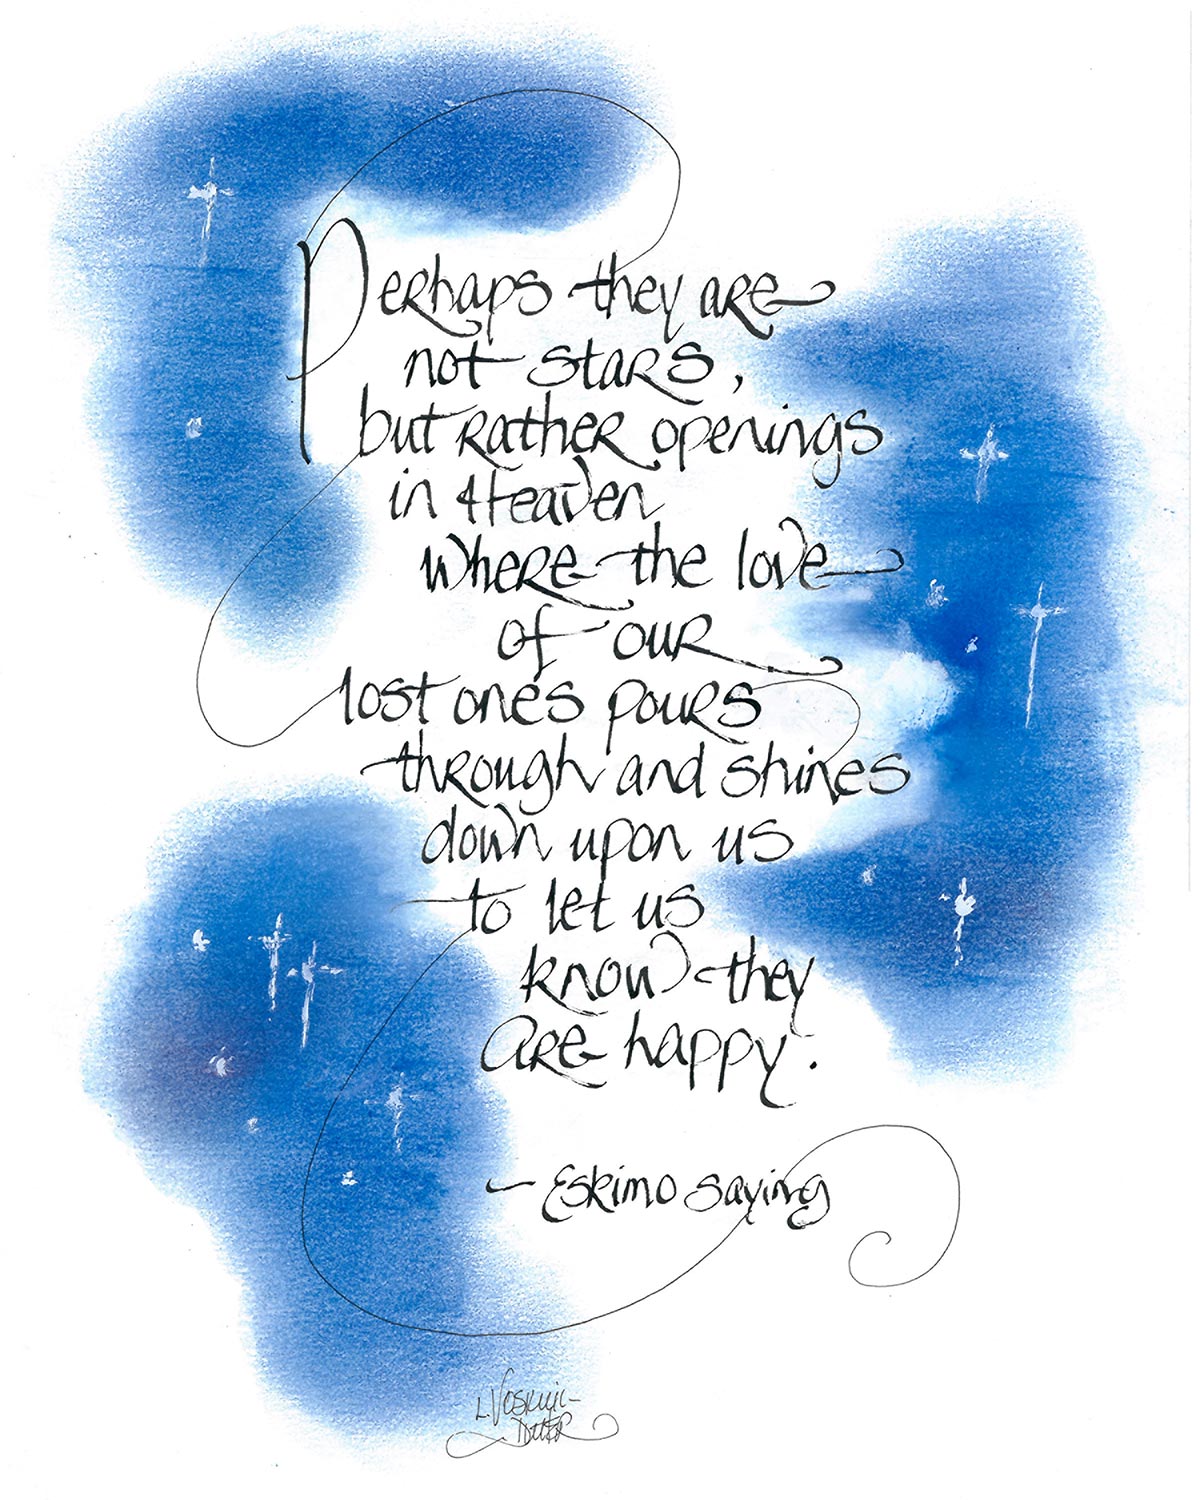 Perhaps they are
not stars,
but rather openings
in Heaven
where the love
of our
lost ones pours
through and shines
down upon us
to let us
know they
are happy.
- Eskimo saying
L. Voskuil-